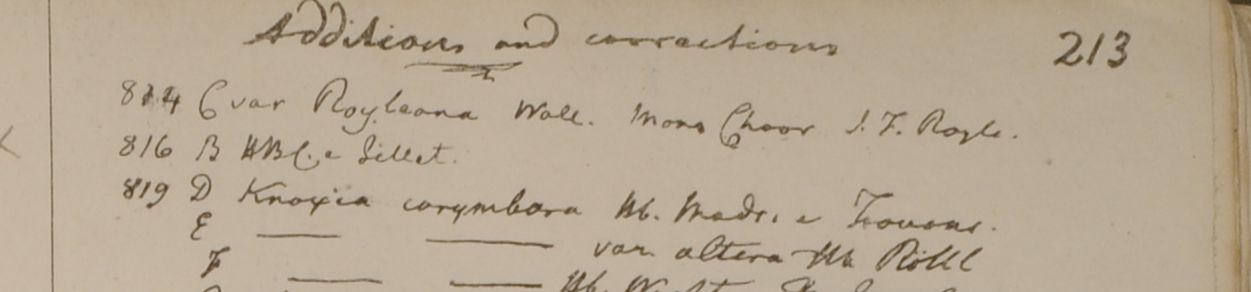 Additions and corrections 213
814 C var Royleana Wall. Mons Choor J. F. Royle.
816 B HBC. e Sillet.
819 D Knoxia corymbosa Hb. Madr. e
E — — var. altera Hb Röttl
F — — Hb. Wight